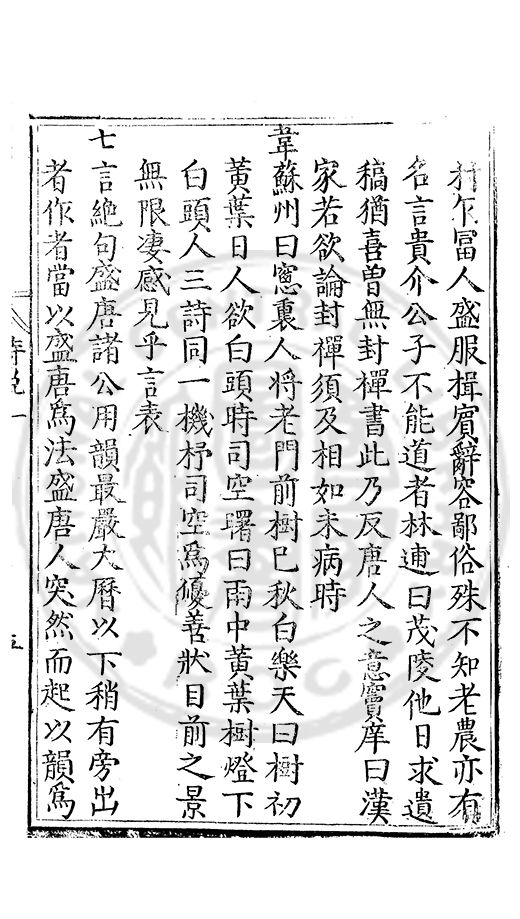 村乍冨人盛服揖賓辭容鄙俗殊不知老農亦有
名言貴介公子不能道者林逋曰茂陵他日求遺
稿猶喜曾無封禪書此乃反唐人之意竇庠曰漢
家若欲論封禪須及相如未病時
韋蘇州曰窓裏人將老門前樹已秋白樂天曰樹初
黃葉日人欲白頭時司空曙曰雨中黃葉樹燈下
白頭人三詩同一機杼司空爲優善狀目前之景
無限凄感見乎言表
七言絕句盛唐諸公用韻最嚴大曆以下稍有旁出
者作者當以盛唐爲法盛唐人突然而起以韻爲